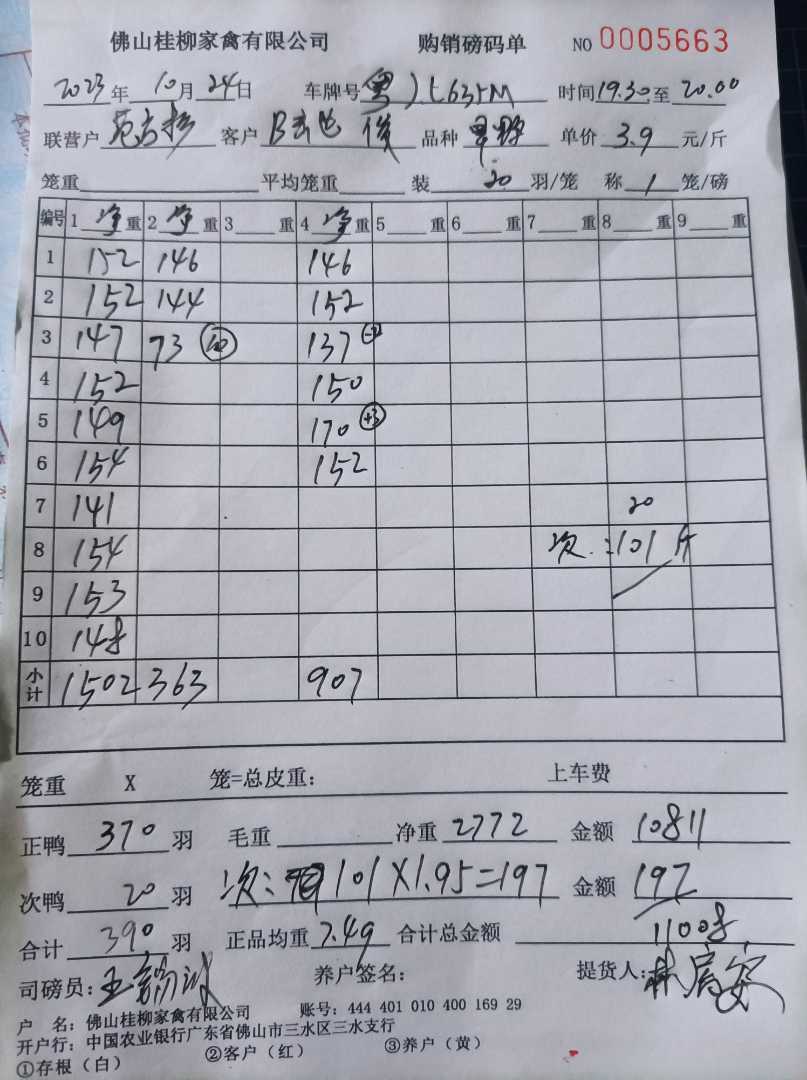 佛山桂柳家禽有限公司 购销磅码单 NO 0005663
2023年 10月 24日 车牌号 粤 时间 19.30 至 20.00
联营户 客户 品种 单价 3.9 元/斤
笼重 平均笼重 装 20 羽/笼 称 1 笼/磅
编号 1 净 重 2 净 重 3 重 4 净 重 5 重 6 重 7 重 8 重 9 重
1 152 146 146
2 152 144 152
3 147 73 ⑩ 137
4 152 150
5 149 170 (+3)
6 154 152
7 141 20
8 154 次:101斤
9 153
10 148
小计 1502 363 907
笼重 X 笼=总皮重: 上车费
正鸭 370 羽 毛重 净重 2772 金额 10811
次鸭 20 羽 次: 101X1.95=197 金额 197
合计 390 羽 正品均重 7.49 合计总金额 11008
司磅员: 养户签名: 提货人:
户 名: 佛山桂柳家禽有限公司 账号: 444 401 010 400 169 29
开户行: 中国农业银行广东省佛山市三水区三水支行
①存根(白) ②客户(红) ③养户(黄)